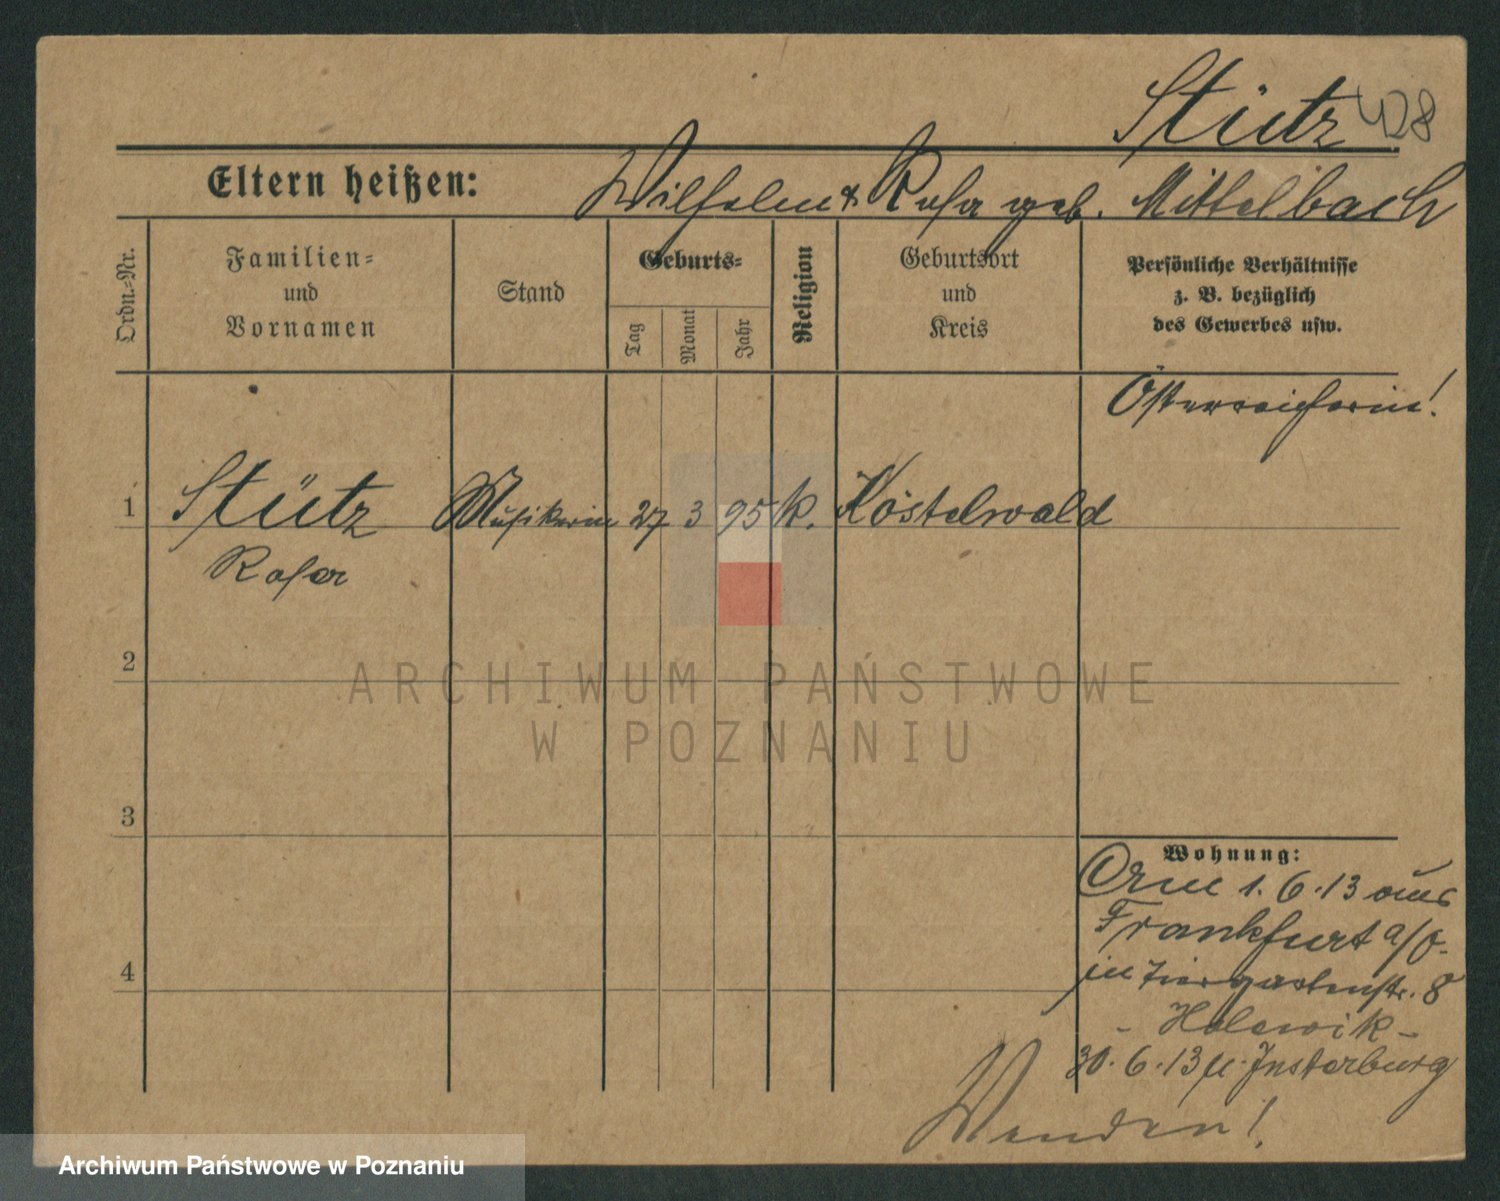 Stütz 428
Eltern heißen: Wilhelm & Rosa geb. Mittelbach
Ordn.-Nr.
Familien-
und
Vornamen
Stand
Geburts-
Tag
Monat
Jahr
Religion
Geburtsort
und
Kreis
Persönliche Verhältnisse
z. B. bezüglich
des Gewerbes usw.
Österreicherin!
1 Stütz Musikerin 27 3 95 k. Köstelwald
Rosa
2
ARCHIWUM PAŃSTWOWE
W POZNANIU
3
Wohnung:
Am 1.6.13 aus
Frankfurt a/O.
in Tiergartenstr. 8
4
- Holewik -
30.6.13 n. Insterburg
Wenden!
Archiwum Państwowe w Poznaniu